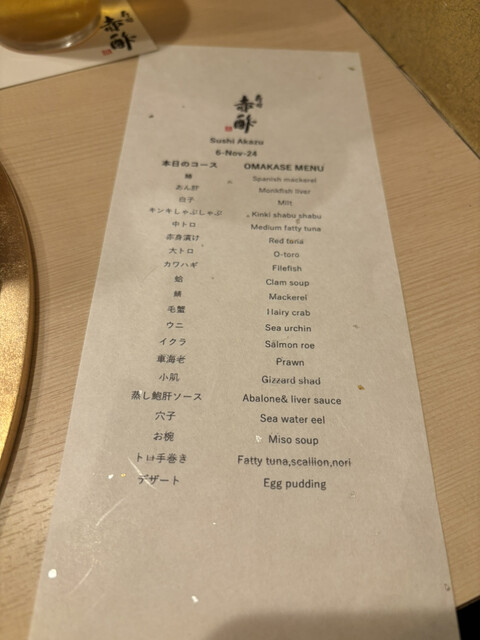 鮨 赤酢
赤酢
Sushi Akazu
6-Nov-24
本日のコース OMAKASE MENU
鰆 Spanish mackerel
あん肝 Monkfish liver
白子 Milt
キンキしゃぶしゃぶ Kinki shabu shabu
中トロ Medium fatty tuna
赤身漬け Red tuna
大トロ O-toro
カワハギ Filefish
蛤 Clam soup
鯖 Mackerel
毛蟹 Hairy crab
ウニ Sea urchin
イクラ Salmon roe
車海老 Prawn
小肌 Gizzard shad
蒸し鮑肝ソース Abalone& liver sauce
穴子 Sea water eel
お椀 Miso soup
トロ手巻き Fatty tuna,scallion,nori
デザート Egg pudding